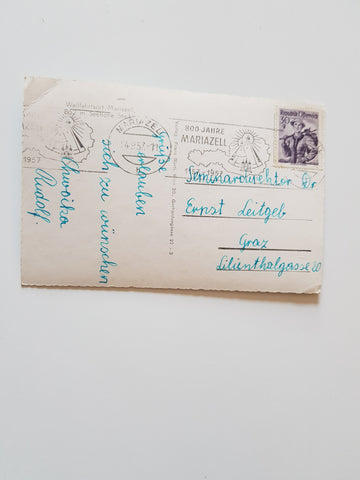 Wallfahrtsort Mariazell
MARIAZELL
14.8.57
800 JAHRE
MARIAZELL
1957
1957
REPUBLIK ÖSTERREICH
Grüße
erlauben
sich zu wünschen
Rudolf.
Seminardirektor Dr.
Ernst Leitgeb
Graz
Lilienthalgasse 20